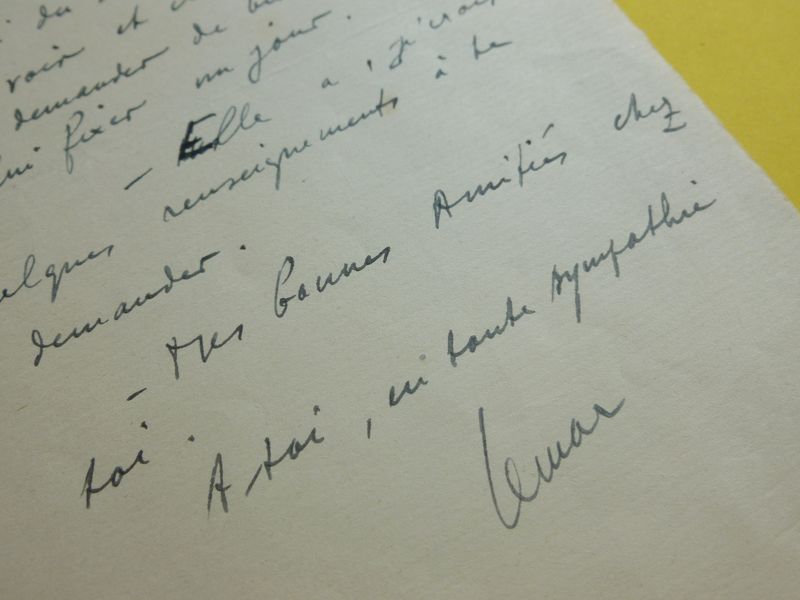 du
voir et
demander de
lui fixer un jour.
- Elle a, j'crois
quelques renseignements à te
demander.
- très bonnes Amitiés chez
toi.
A toi, en toute sympathie